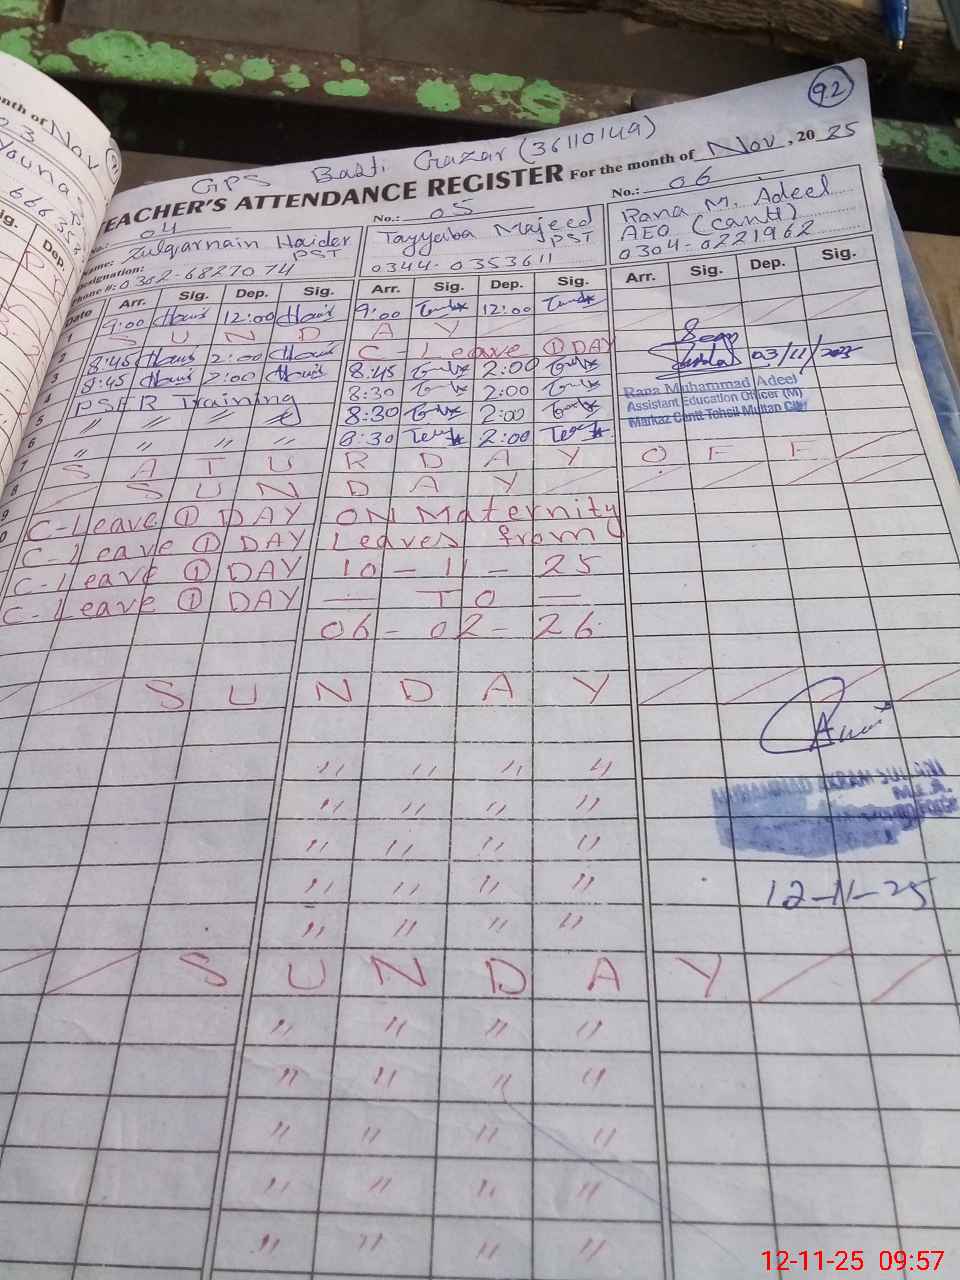 92
GPS Basti Gazar (36110149)
TEACHER'S ATTENDANCE REGISTER For the month of Nov, 2025
04
Name: Zulqarnain Haider
Designation: PST
Phone #: 0302-6827074
No.: 05
Tayyaba Majeed
PST
0344-0353611
No.: 06
Rana M. Adeel
AEO (Cantt)
0304-0221962
Date Arr. Sig. Dep. Sig. Arr. Sig. Dep. Sig. Arr. Sig. Dep. Sig.
1 9:00 12:00 9:00 12:00
2 S U N D A Y
3 8:45 2:00 C-Leave ① DAY
4 8:45 2:00 8:45 2:00
5 PSER Training 8:30 2:00
6 " " " 8:30 2:00
7 " " " " 8:30 2:00
8 S A T U R D A Y O F F
9 S U N D A Y
C-Leave ① DAY ON Maternity
C-Leave ① DAY Leaves from
C-Leave ① DAY 10-11-25
C-Leave ① DAY — TO —
06-02-26
03/11/2025
Rana Muhammad Adeel
Assistant Education Officer (M)
Markaz Cantt Tehsil Multan City
S U N D A Y
" " " "
" " " "
" " " "
" " " "
" " " "
12-11-25
S U N D A Y
" " " "
" " " "
" " " "
" " " "
" " " "
nth of Nov
Dep.
12-11-25 09:57